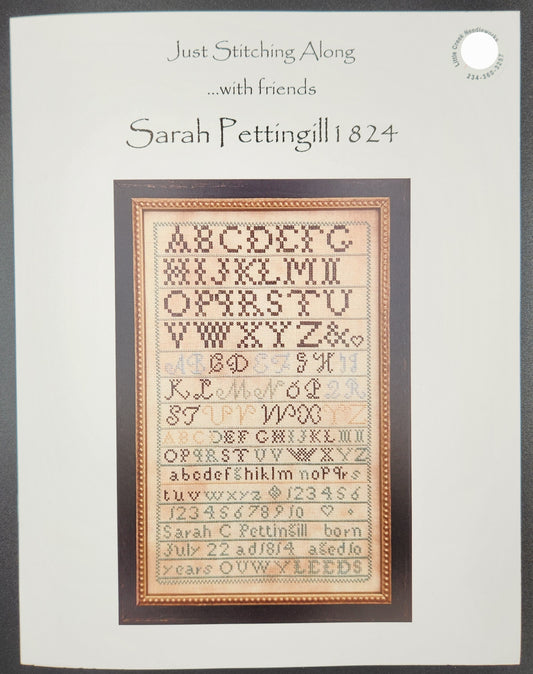 Just Stitching Along
...with friends
Sarah Pettingill 1824
Little Creek Needleworks
234-365-3257
ABCDEFG
HIJKLMN
OPqRSTU
VWXYZ&
AB CD EF GH IJ
KL MN OP QR
ST UV WX YZ
ABCDEFGHIJKLMN
OPqRSTUVWXYZ
abcdefghiklmnopqrs
tuvwxyz 123456
12345678910
Sarah C Pettingill born
July 22 ad 1814 aged 10
years OUWY LEEDS